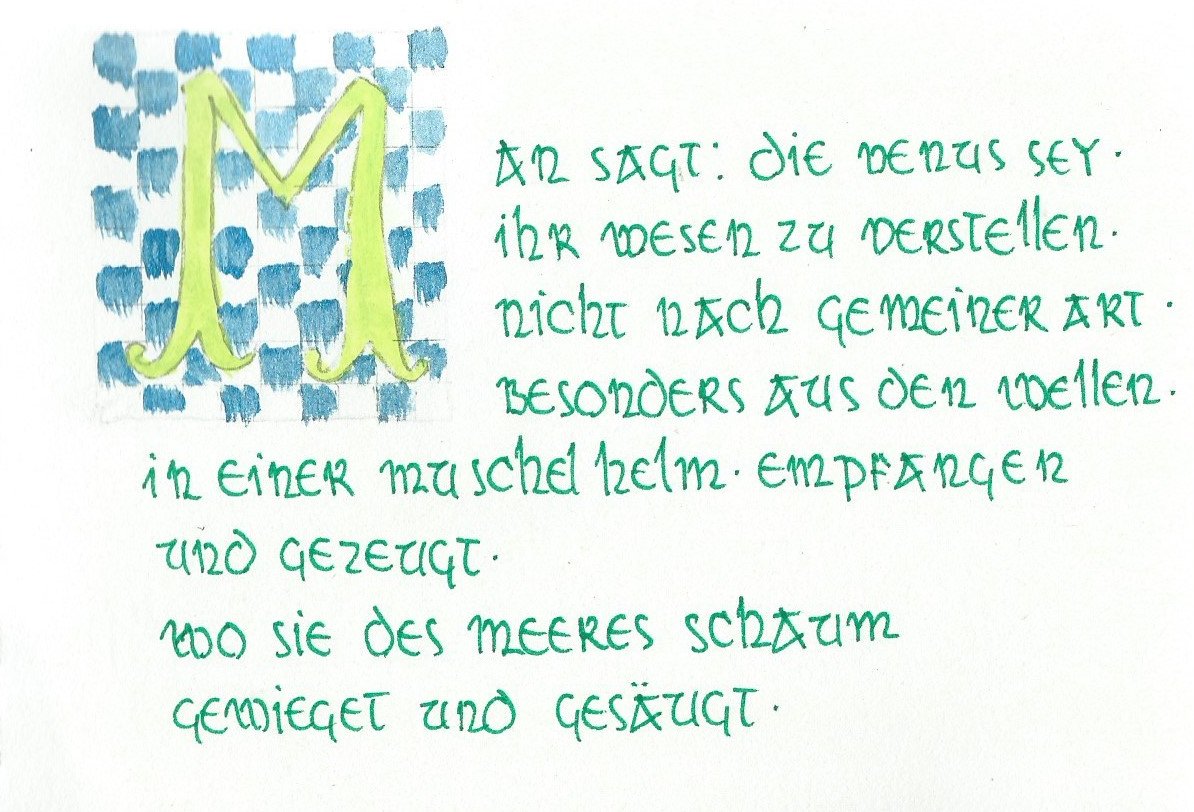 MAN SAGT: DIE VENUS SEY·
IHR WESEN ZU VERSTELLEN·
NICHT NACH GEMEINER ART·
BESONDERS AUS DEN WELLEN·
IN EINER MUSCHEL HELM· EMPFANGEN
UND GEZEUGT·
WO SIE DES MEERES SCHAUM
GEWIEGET UND GESÄUGT·